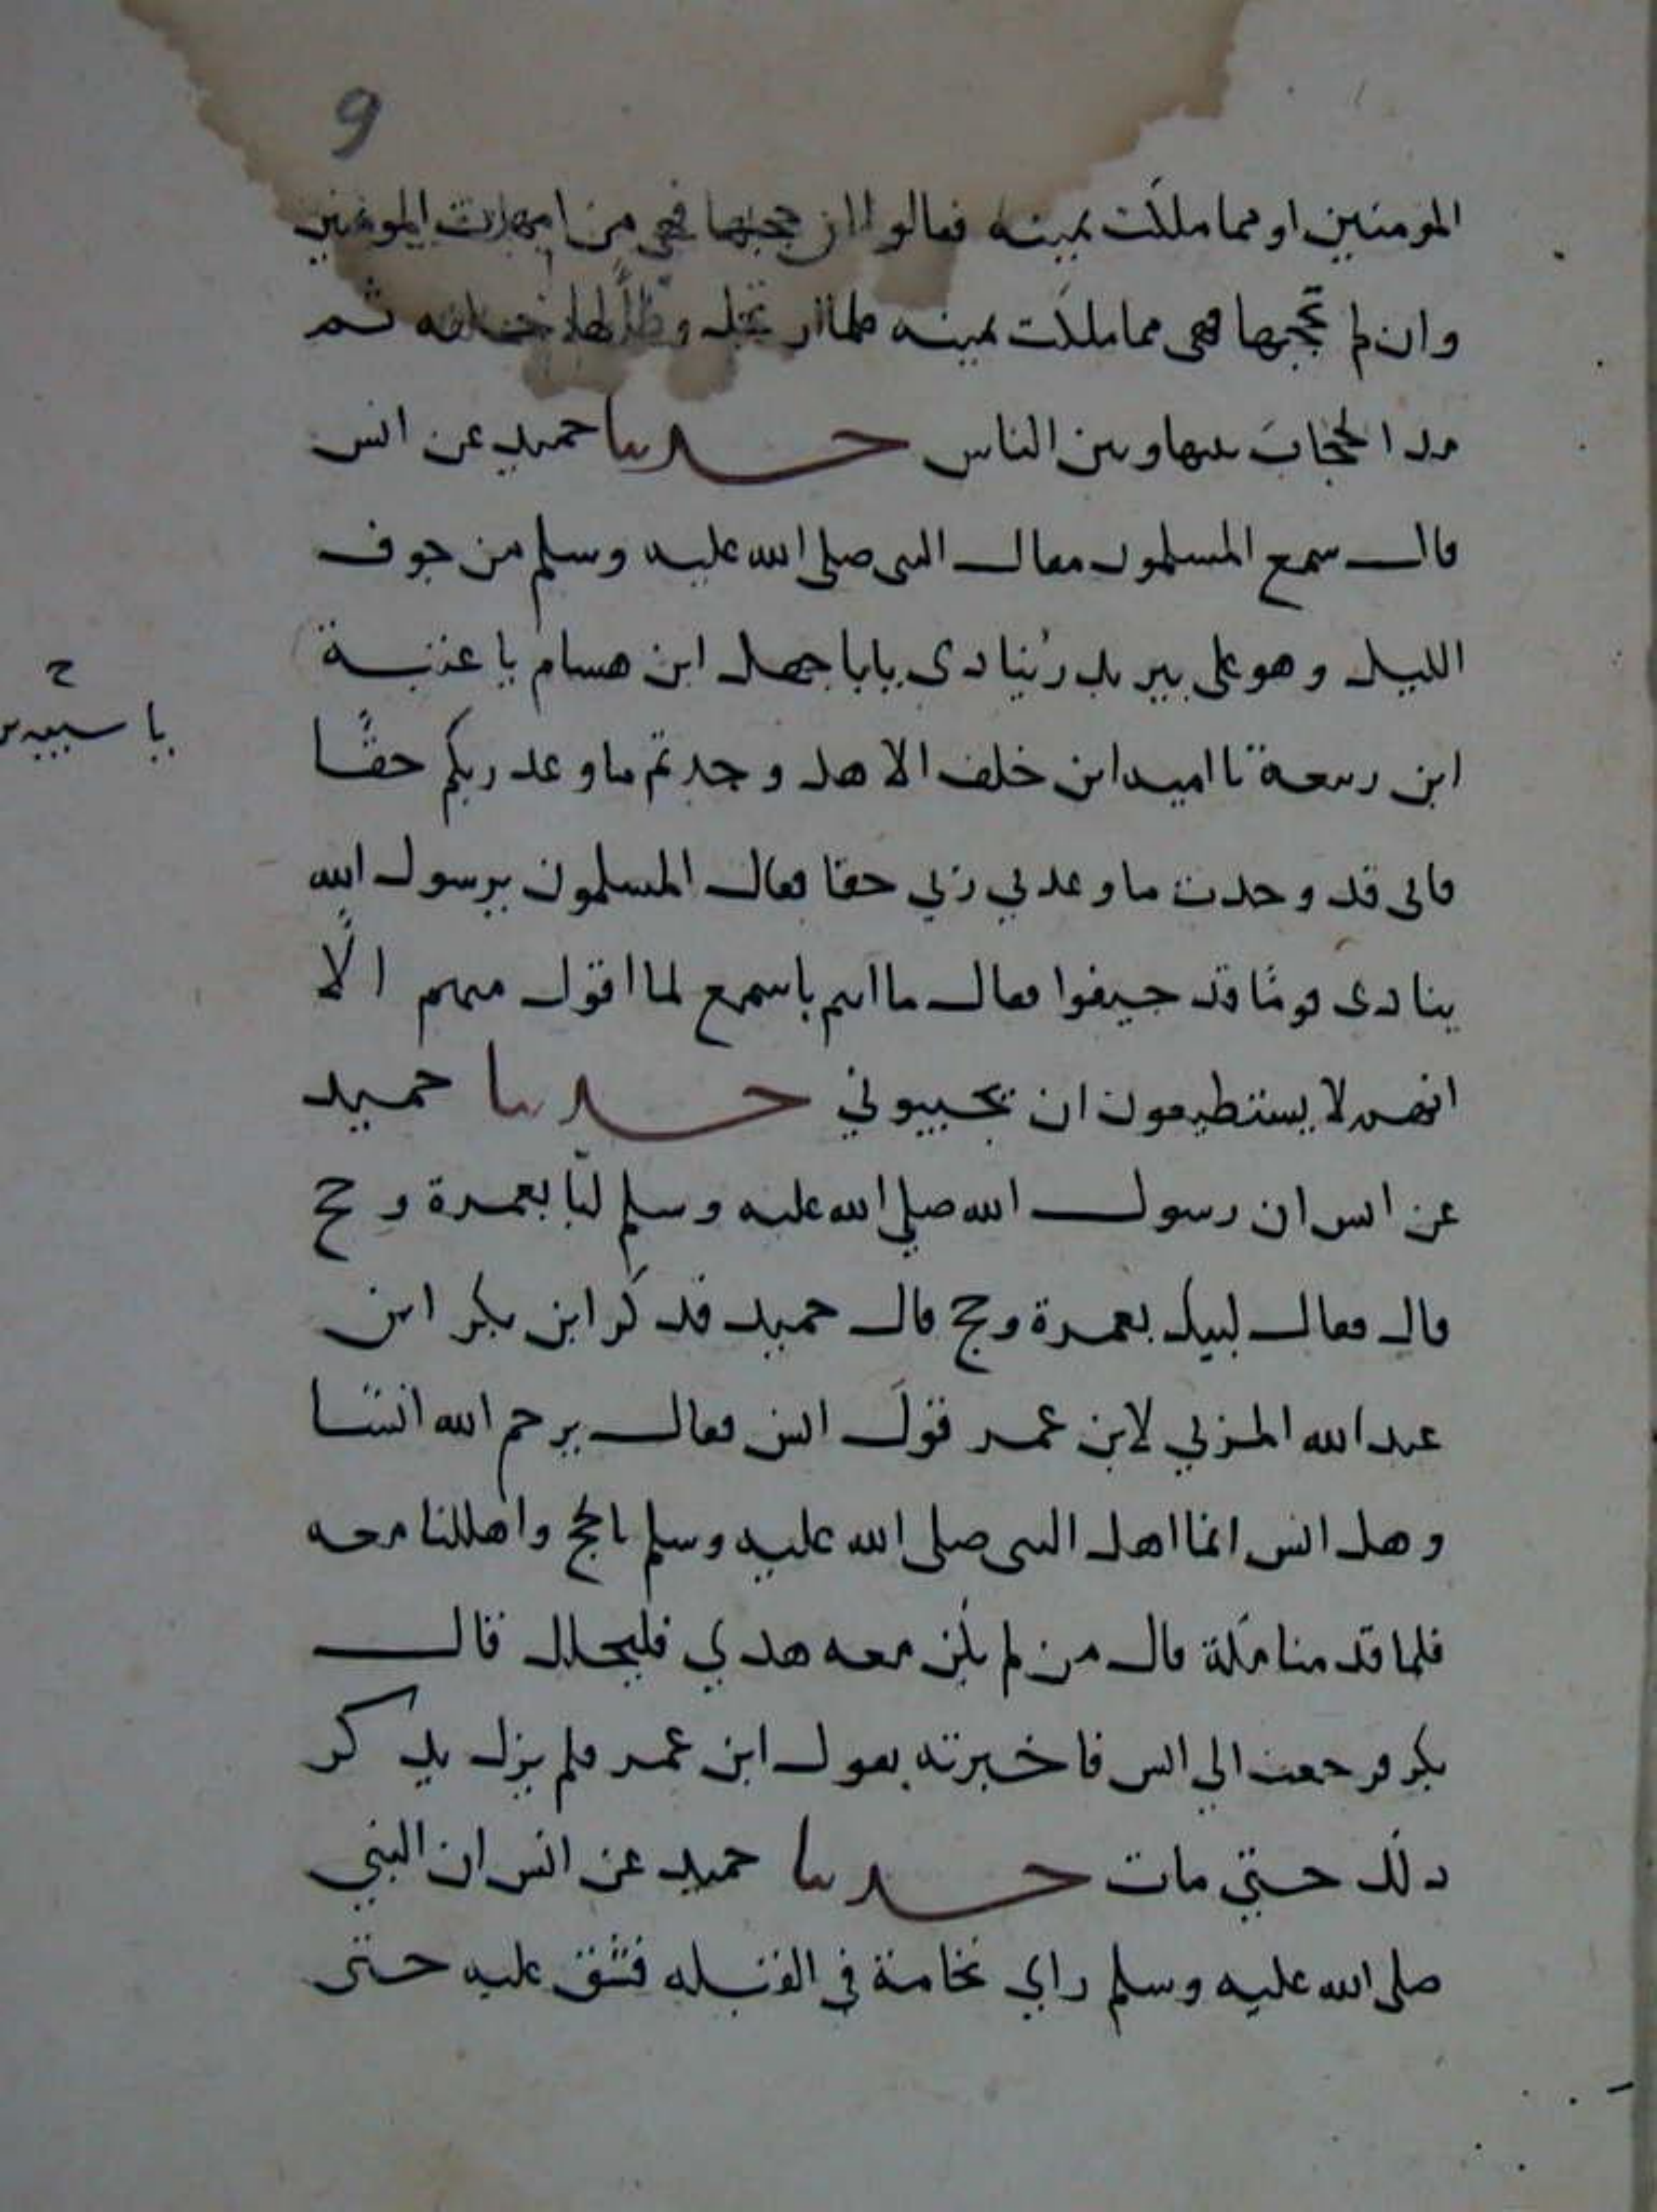 9
المومنين او مما ملكت يمينه فقالوا ان حجبها فهي من امهات المومنين
وان لم تحجبها فهى مما ملكت يمينه فلما ارتحل وطا لها خلفه ثم
مد الحجاب بينها وبين الناس حدثنا حميد عن انس
قال سمع المسلمون مقال النبى صلى الله عليه وسلم من جوف
الليل وهو على بير بدر ينادى يابا جهل ابن هسام يا عتبة
يا شيبه بن
ابن ربيعة يا اميه ابن خلف الا هل وجدتم ما وعد ربكم حقًا
فانى قد وجدت ما وعدني ربي حقا فقال المسلمون يرسول الله
ينادى قومًا قد جيفوا فقال ما انتم باسمع لما اقول منهم الّا
انهم لا يستطيعون ان يجيبوني حدثنا حميد
عن انس ان رسول الله صلي الله عليه وسلم لبّا بعمرة وحج
قال فقال لبيك بعمرة وحج قال حميد فذكر ابن بكر ابن
عبد الله المزني لابن عمر قول انس فقال يرحم الله انسًا
وهل انس انما اهل النبى صلى الله عليه وسلم بالحج واهللنا معه
فلما قدمنا مكة قال من لم يكن معه هدي فليحلل قال
بكر فرجعت الي انس فاخبرته بقول ابن عمر فلم يزل يذكر
ذلك حتي مات حدثنا حميد عن انس ان النبي
صلى الله عليه وسلم راي نخامة في القبله فشق عليه حتى